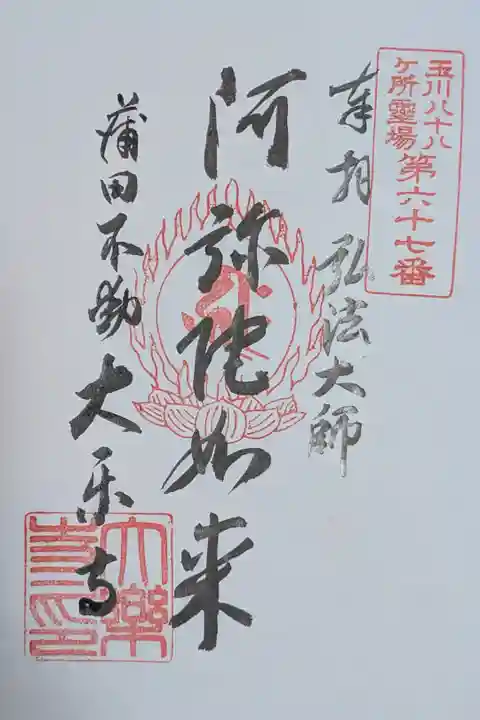 玉川八十八
ケ所霊場第六十七番
奉拝 弘法大師
阿弥陀如来
蒲田不動 大乐寺
大樂
寺印